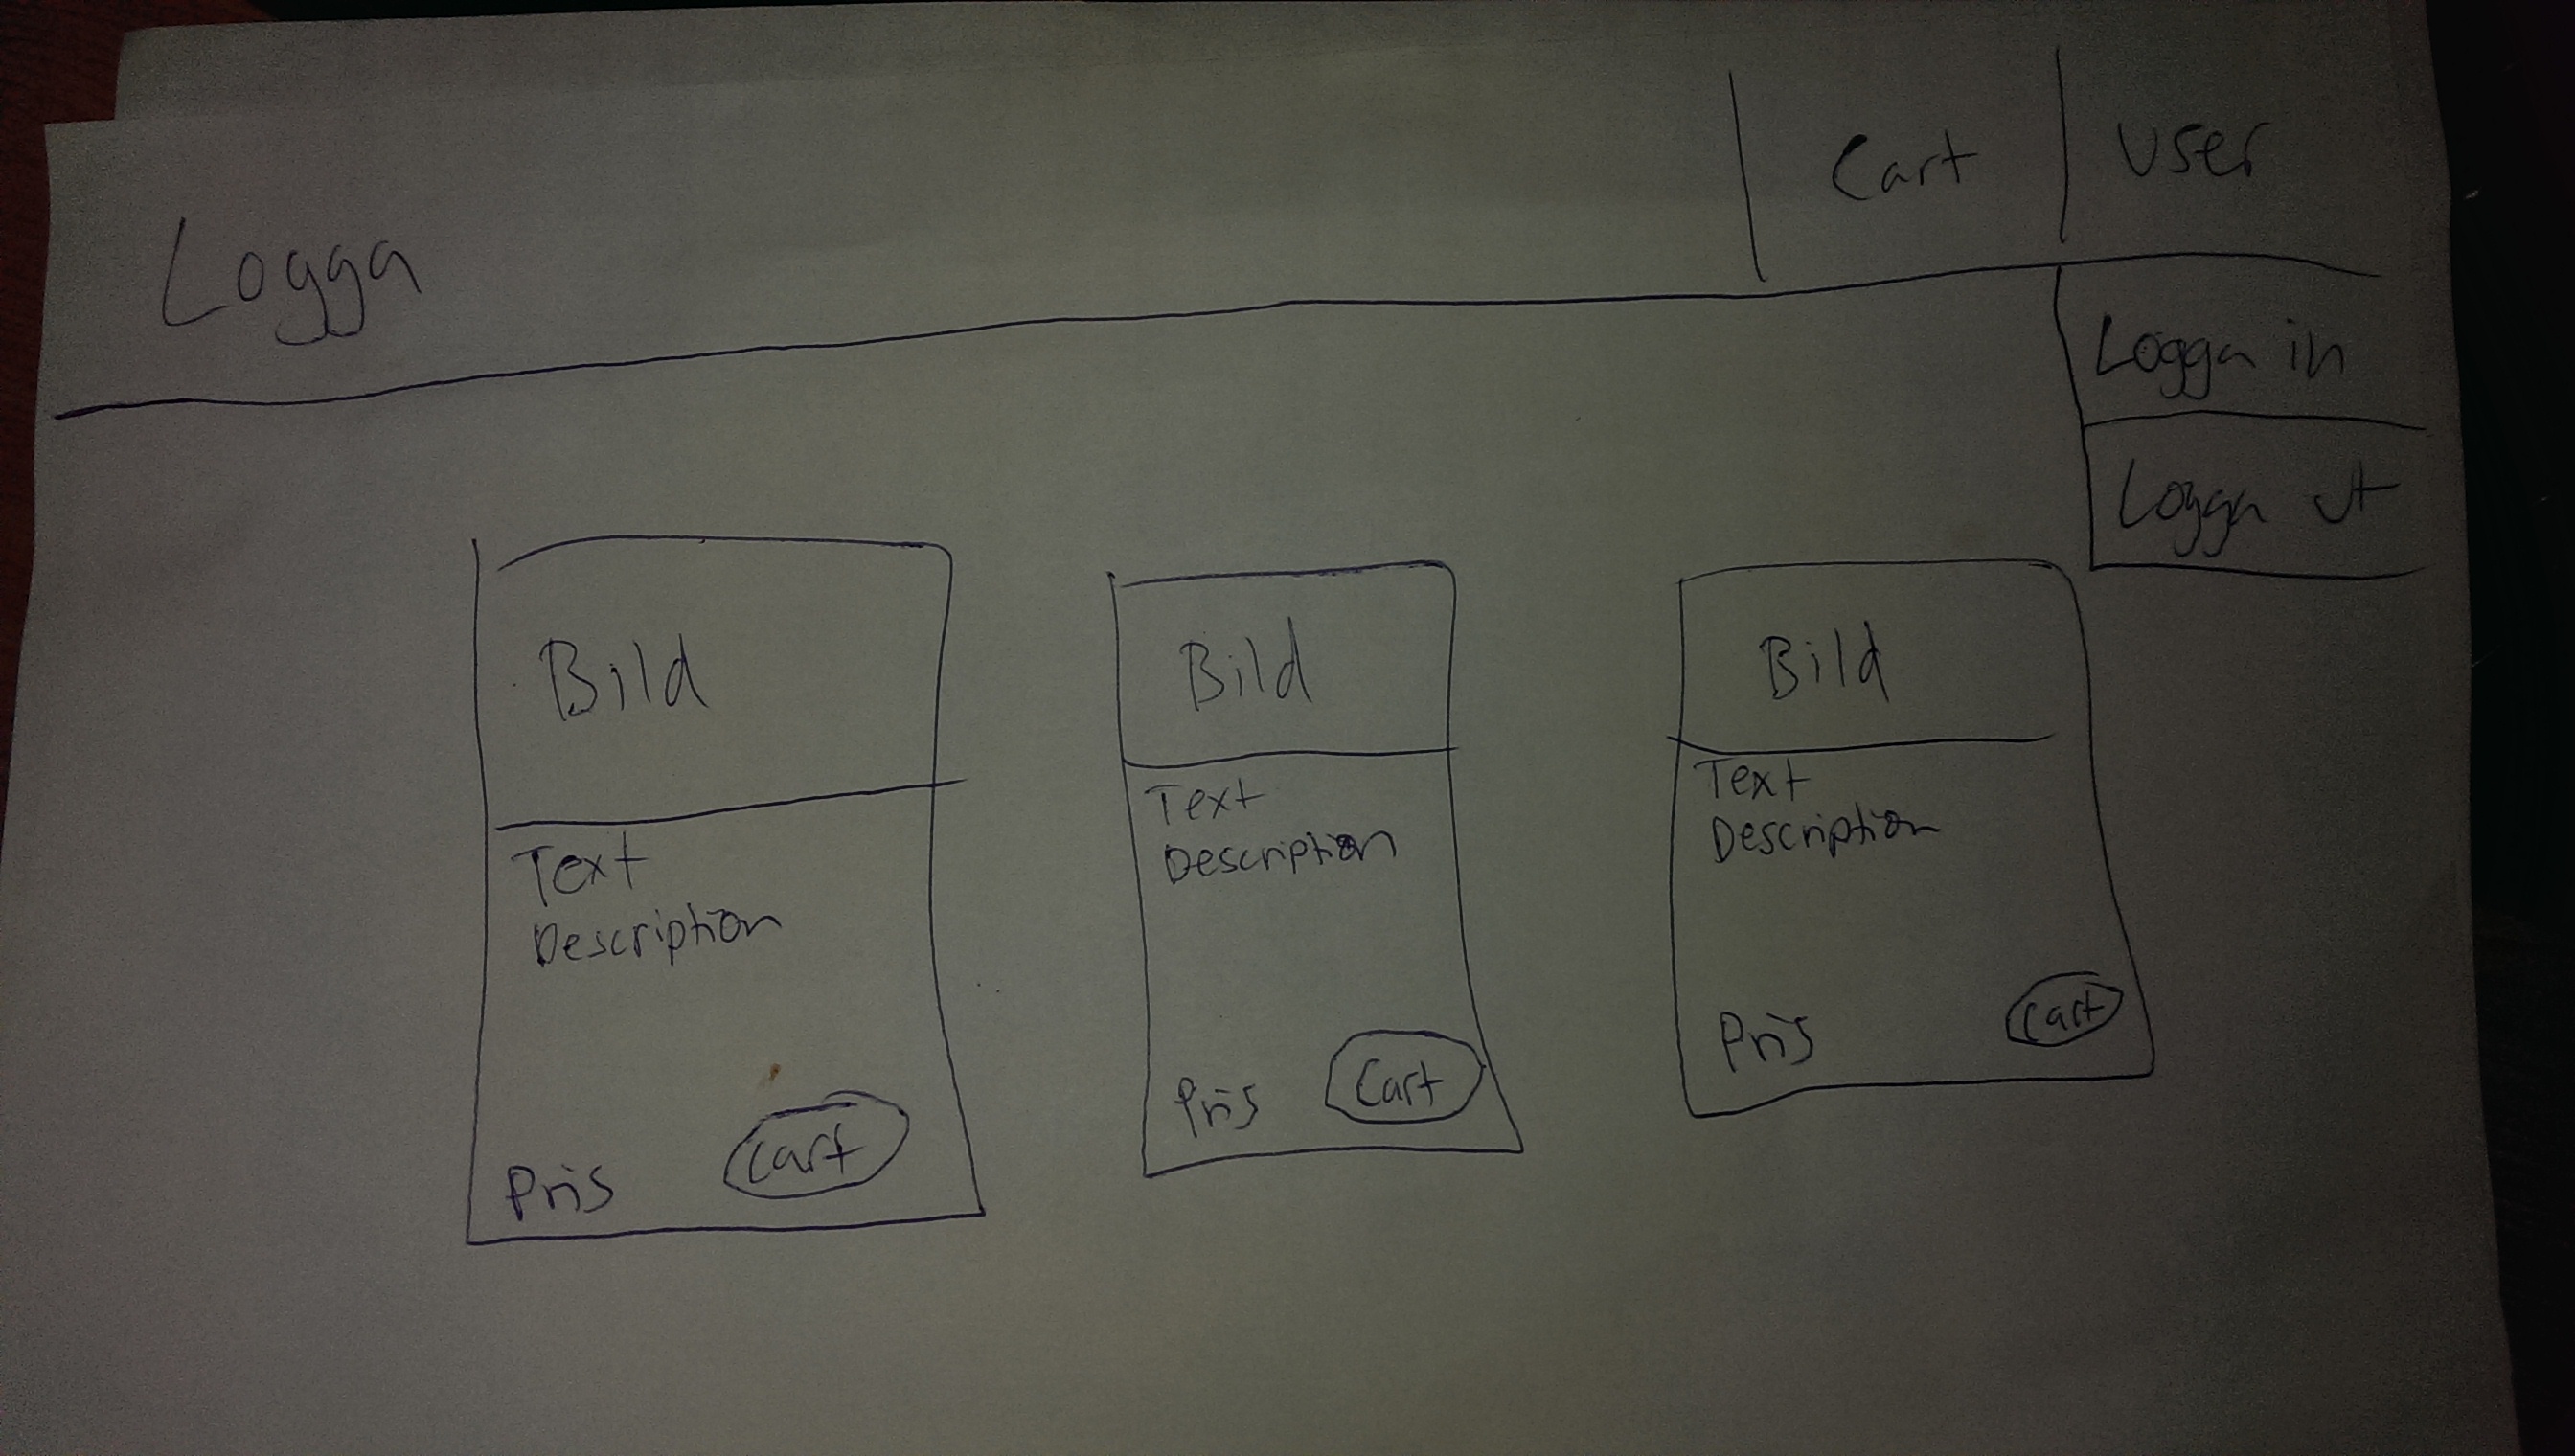 Logga
Cart
User
Logga in
Logga ut
Bild
Text
Description
Pris
Cart
Bild
Text
Description
Pris
Cart
Bild
Text
Description
Pris
Cart